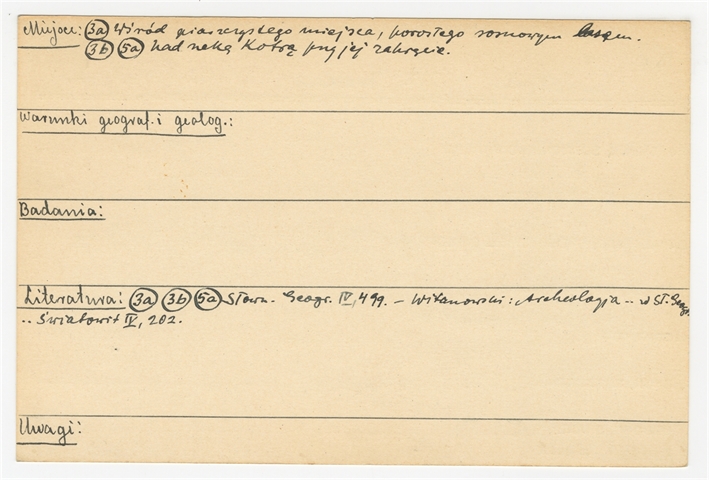 Miejsce: 3a Wśród piaszczystego miejsca, porosłego sosnowym lasem.
3b 5a nad rzeką Kotrą przy jej zakręcie.
Warunki geograf. i geolog.:
Badania:
Literatura: 3a 3b 5a Słown. Geogr. IV, 499. – Witanowski: Archeologja .. w Sł. Geogr.
.. Światowit IV, 202.
Uwagi: